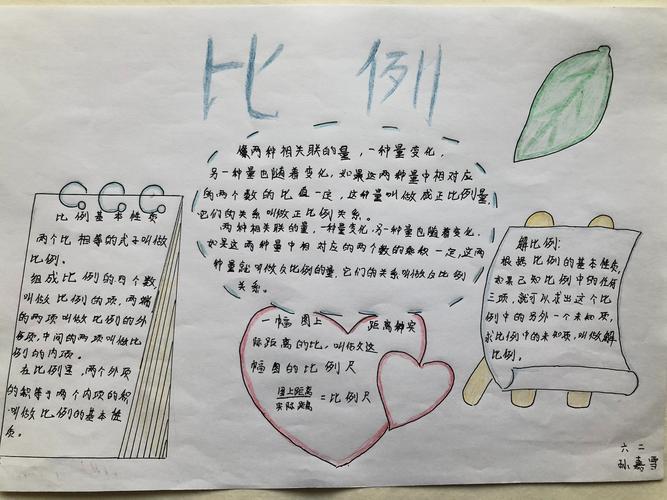 比例
像两种相关联的量，一种量变化，
另一种量也随着变化，如果这两种量中相对应
的两个数的比值一定，这种量叫做成正比例量，
它们的关系叫做正比例关系。
两种相关联的量，一种量变化，另一种量也随着变化，
如果这两种量中相对应的两个数的乘积一定，这两
种量就叫做反比例的量，它们的关系叫做反比例
关系。
比例基本性质
两个比相等的式子叫做
比例。
组成比例的四个数，
叫做比例的项，两端
的两项叫做比例的外
项，中间的两项叫做比
例的内项。
在比例里，两个外项
的积等于两个内项的积
叫做比例的基本性
质。
一幅图上 距离和实
际距离的比，叫做这
幅图的比例尺
图上距离
实际距离 =比例尺
解比例：
根据比例的基本性质，
如果已知比例中的任何
三项，就可以求出这个比
例中的另外一个未知项，
求比例中的未知项，叫做解
比例。
六二
孙嘉雪